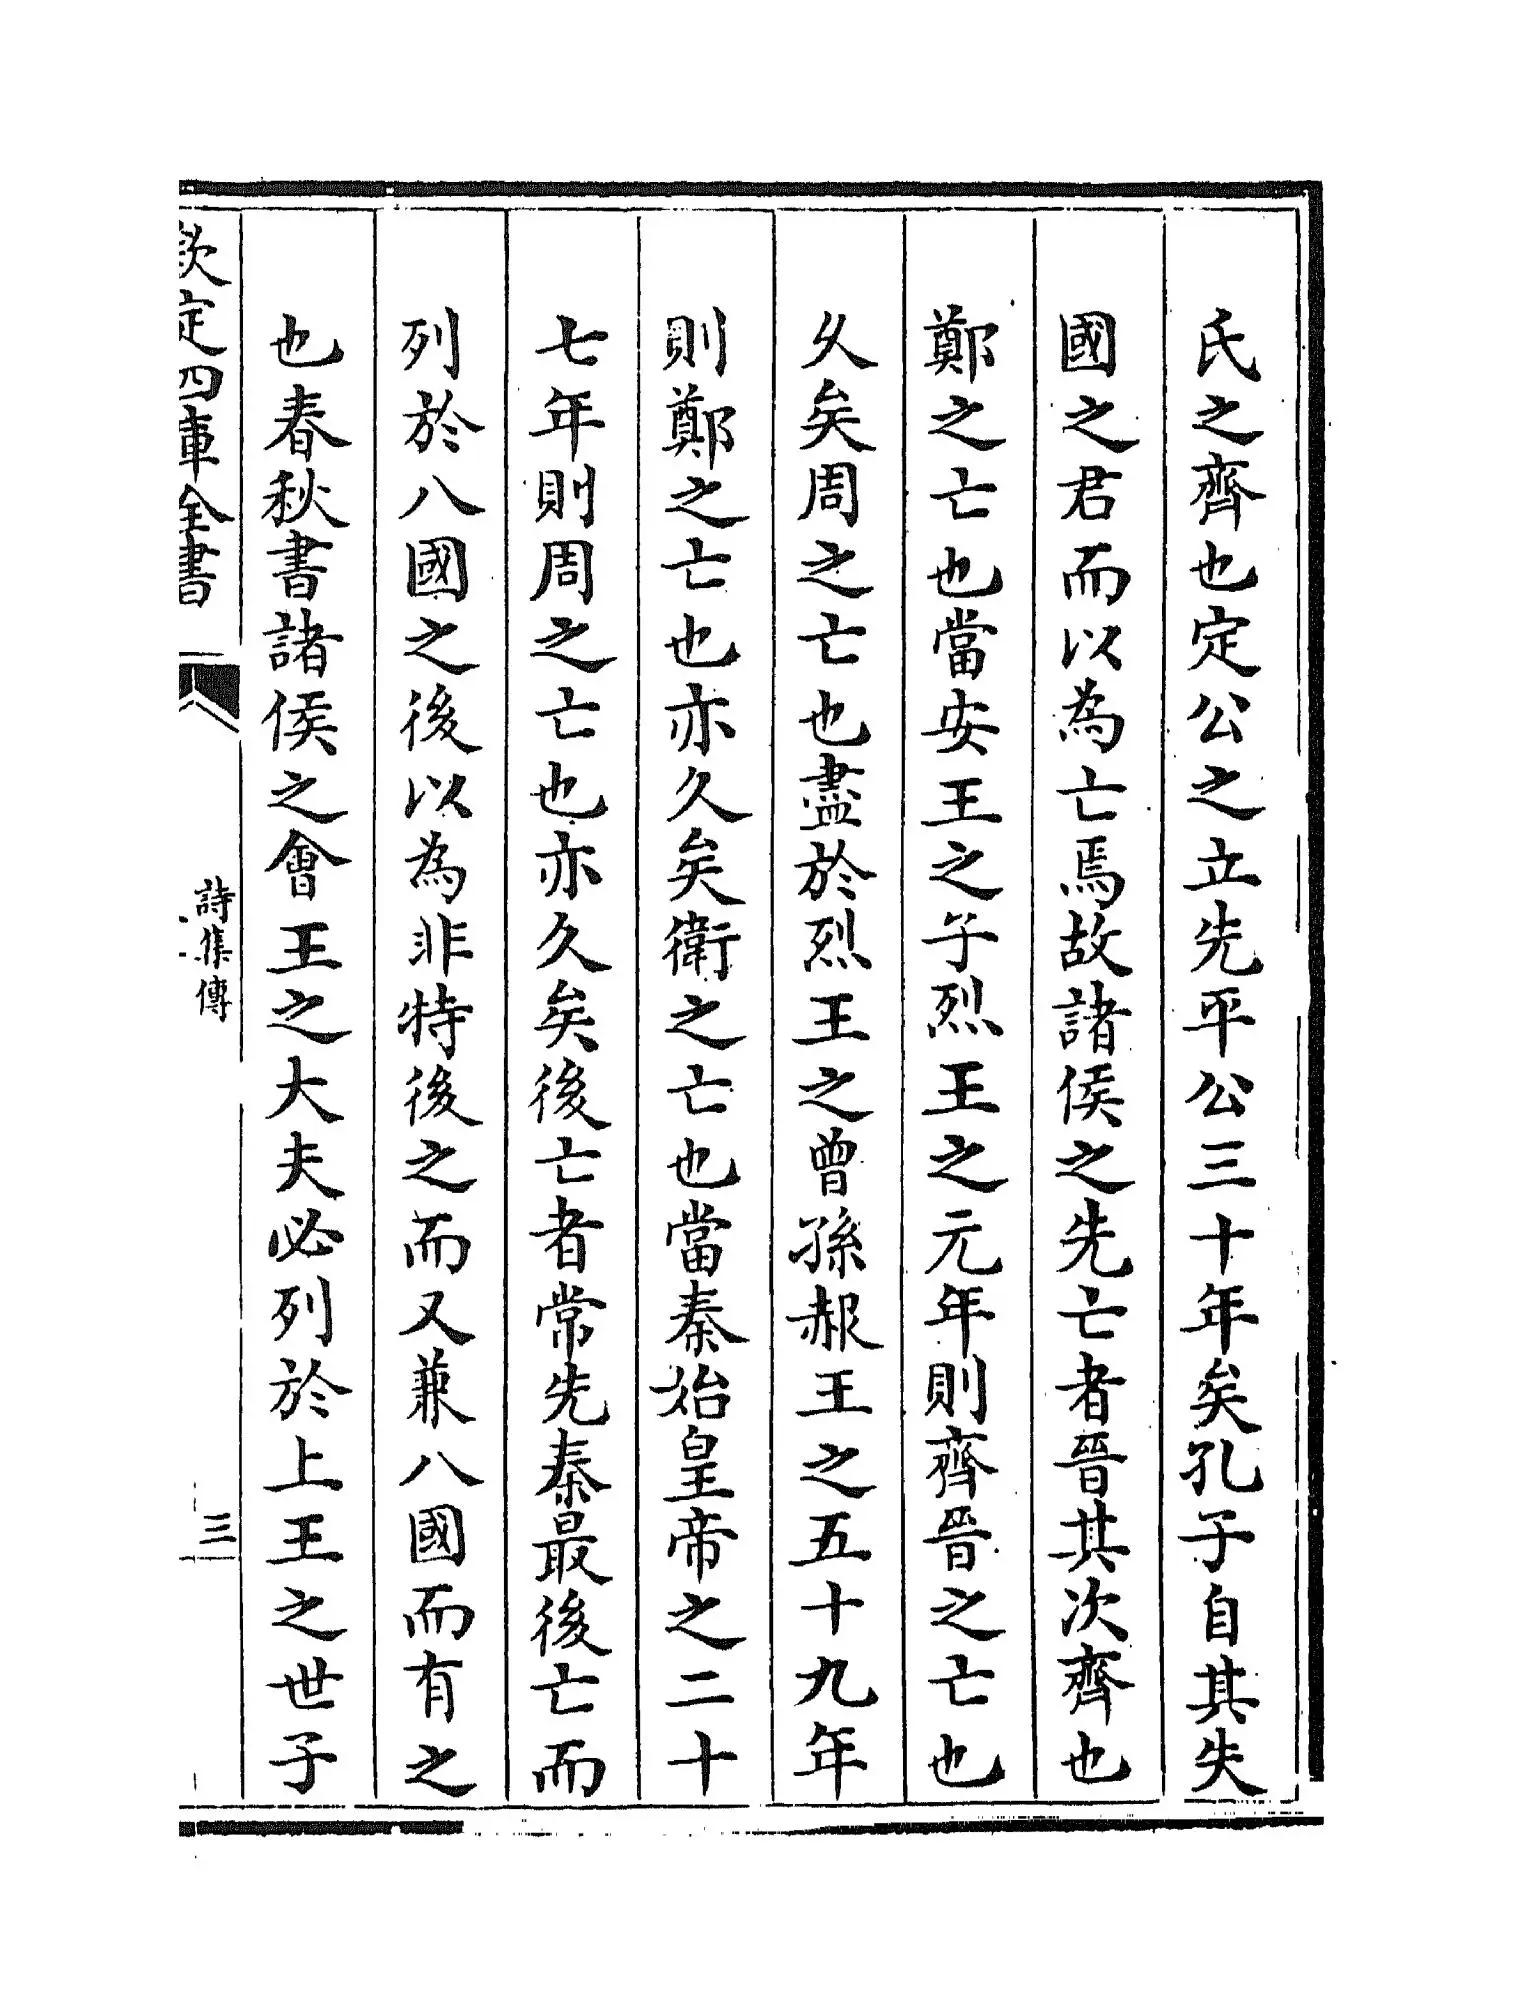 氏之齊也定公之立先平公三十年矣孔子自其失
國之君而以為亡焉故諸侯之先亡者晉其次齊也
鄭之亡也當安王之子烈王之元年則齊晉之亡也
久矣周之亡也盡於烈王之曾孫赧王之五十九年
則鄭之亡也亦久矣衛之亡也當秦始皇帝之二十
七年則周之亡也亦久矣後亡者常先秦最後亡而
列於八國之後以為非特後之而又兼八國而有之
也春秋書諸侯之會王之大夫必列於上王之世子
欽定四庫全書
詩集傳
三